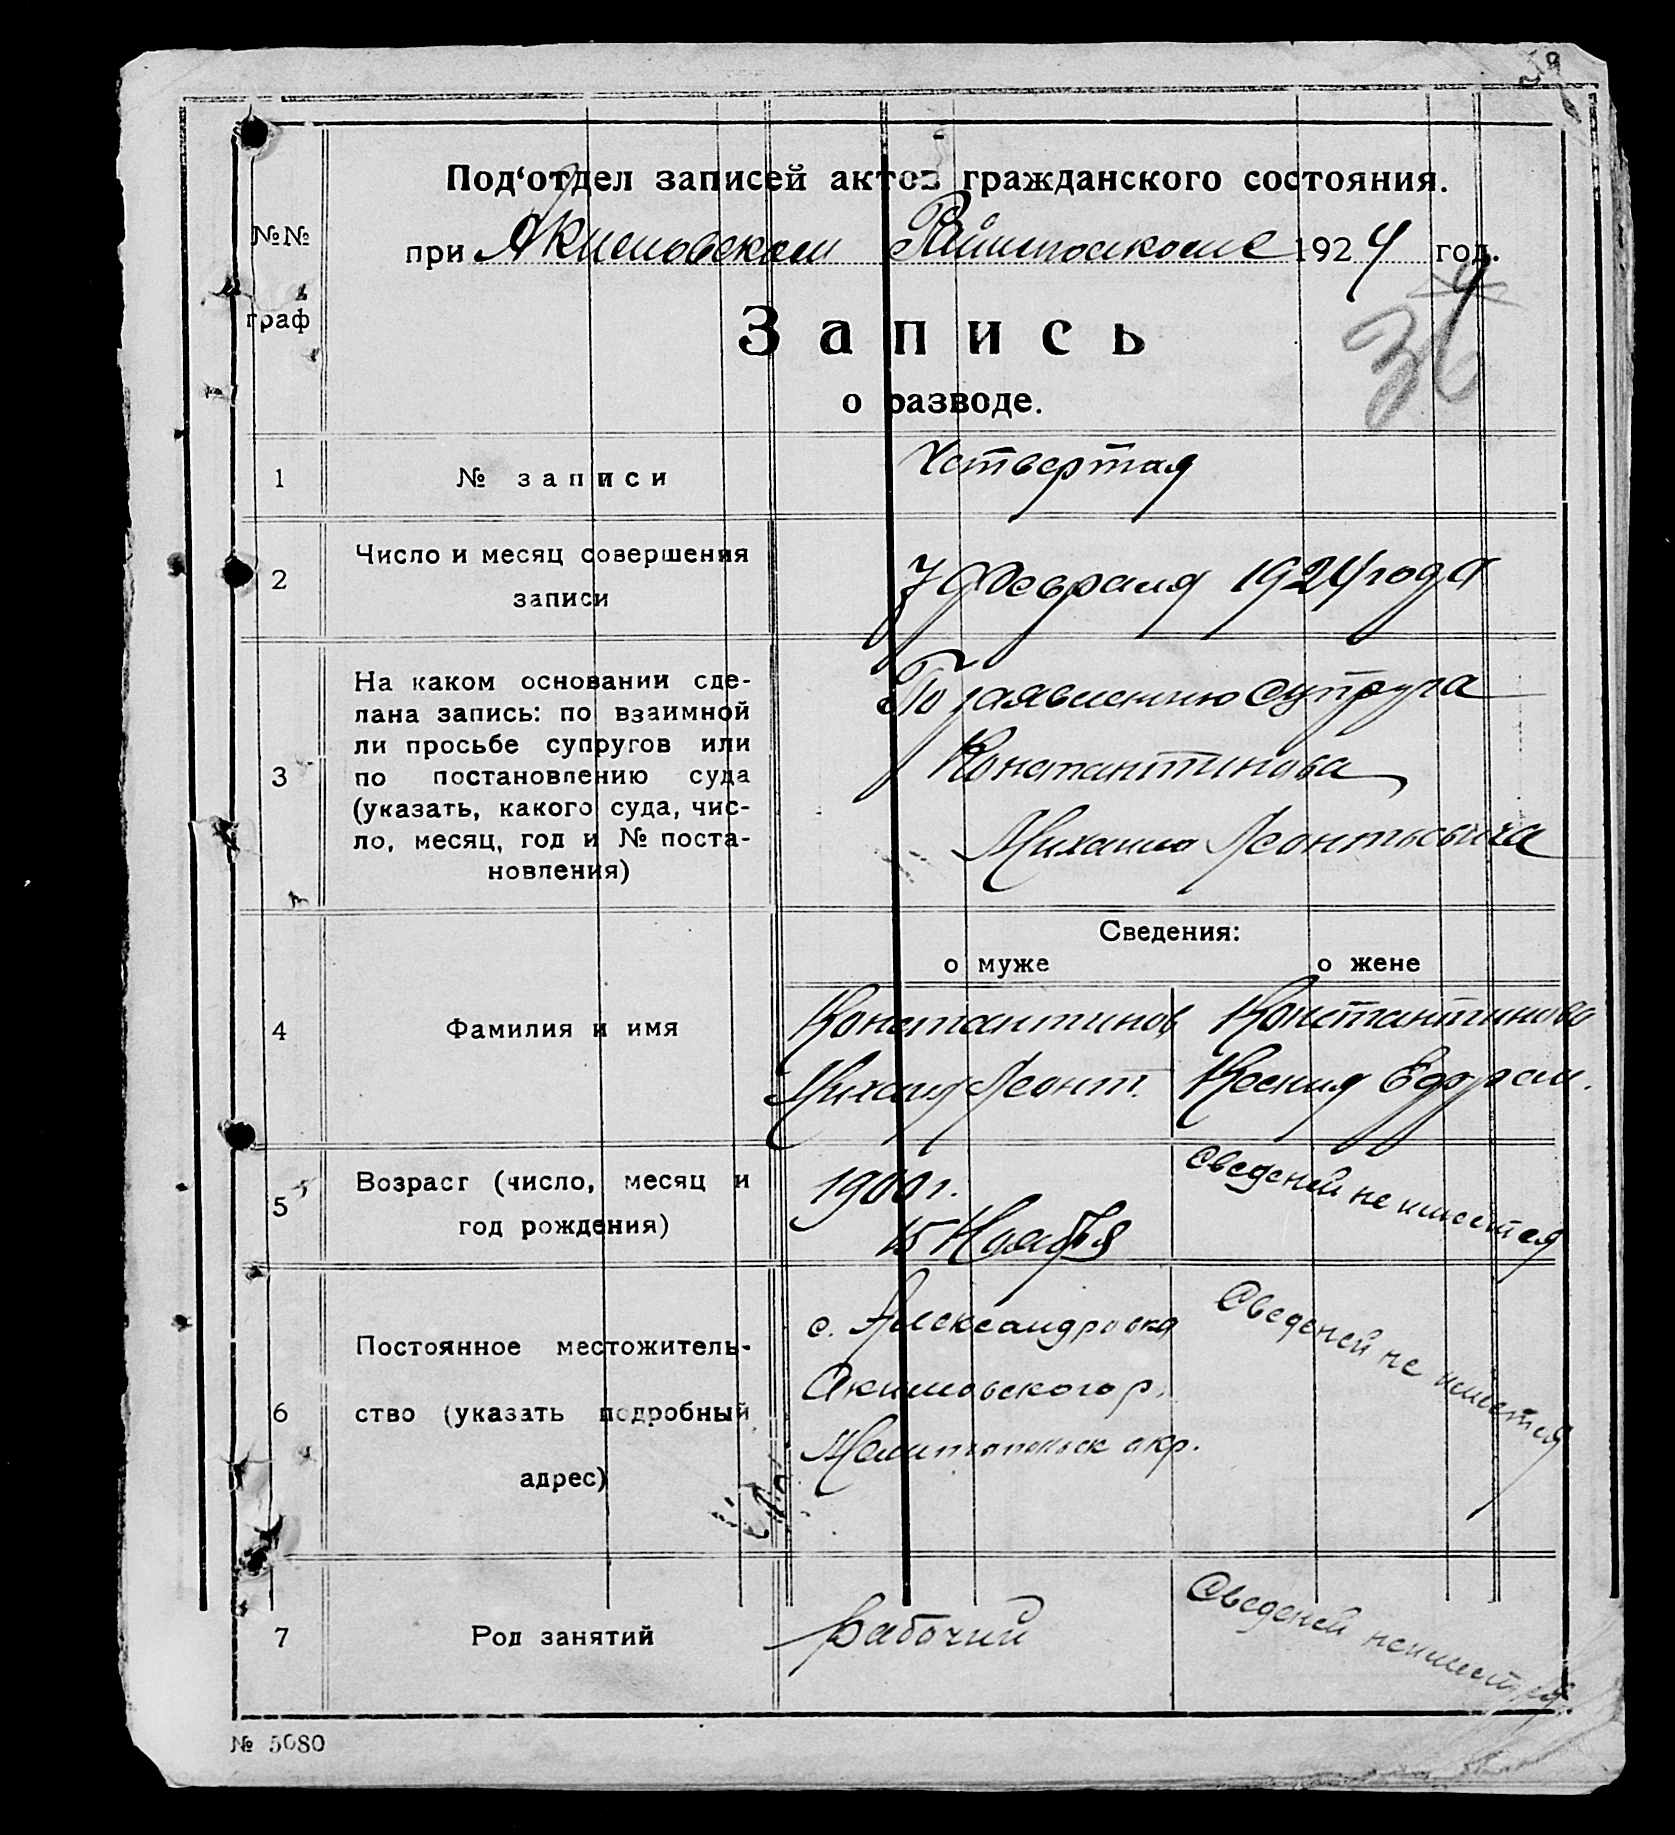 Под‘отдел записей актов гражданского состояния.
№№ граф
при Акимовском Райисполкоме 1924 год.
4
36
Запись
о разводе.
1 № записи Четвертая
2 Число и месяц совершения записи 7 Февраля 1924 года
3 На каком основании сде-
лана запись: по взаимной
ли просьбе супругов или
по постановлению суда
(указать, какого суда, чис-
ло, месяц, год и № поста-
новления)
По заявлению супруга
Константинова
Михаила Леонтьевича
Сведения:
о муже о жене
4 Фамилия и имя
Константинов
Михаил Леонт.
Константинова
Ксения Ефрем.
5 Возраст (число, месяц и
год рождения)
1900 г.
15 Ноября
Сведеней не имеется
6 Постоянное местожитель-
ство (указать подробный
адрес)
с. Александровка
Акимовского р.
Мелитопольск окр.
Сведеней не имеется
7 Род занятий
рабочий
Сведеней не имеется
№ 5080